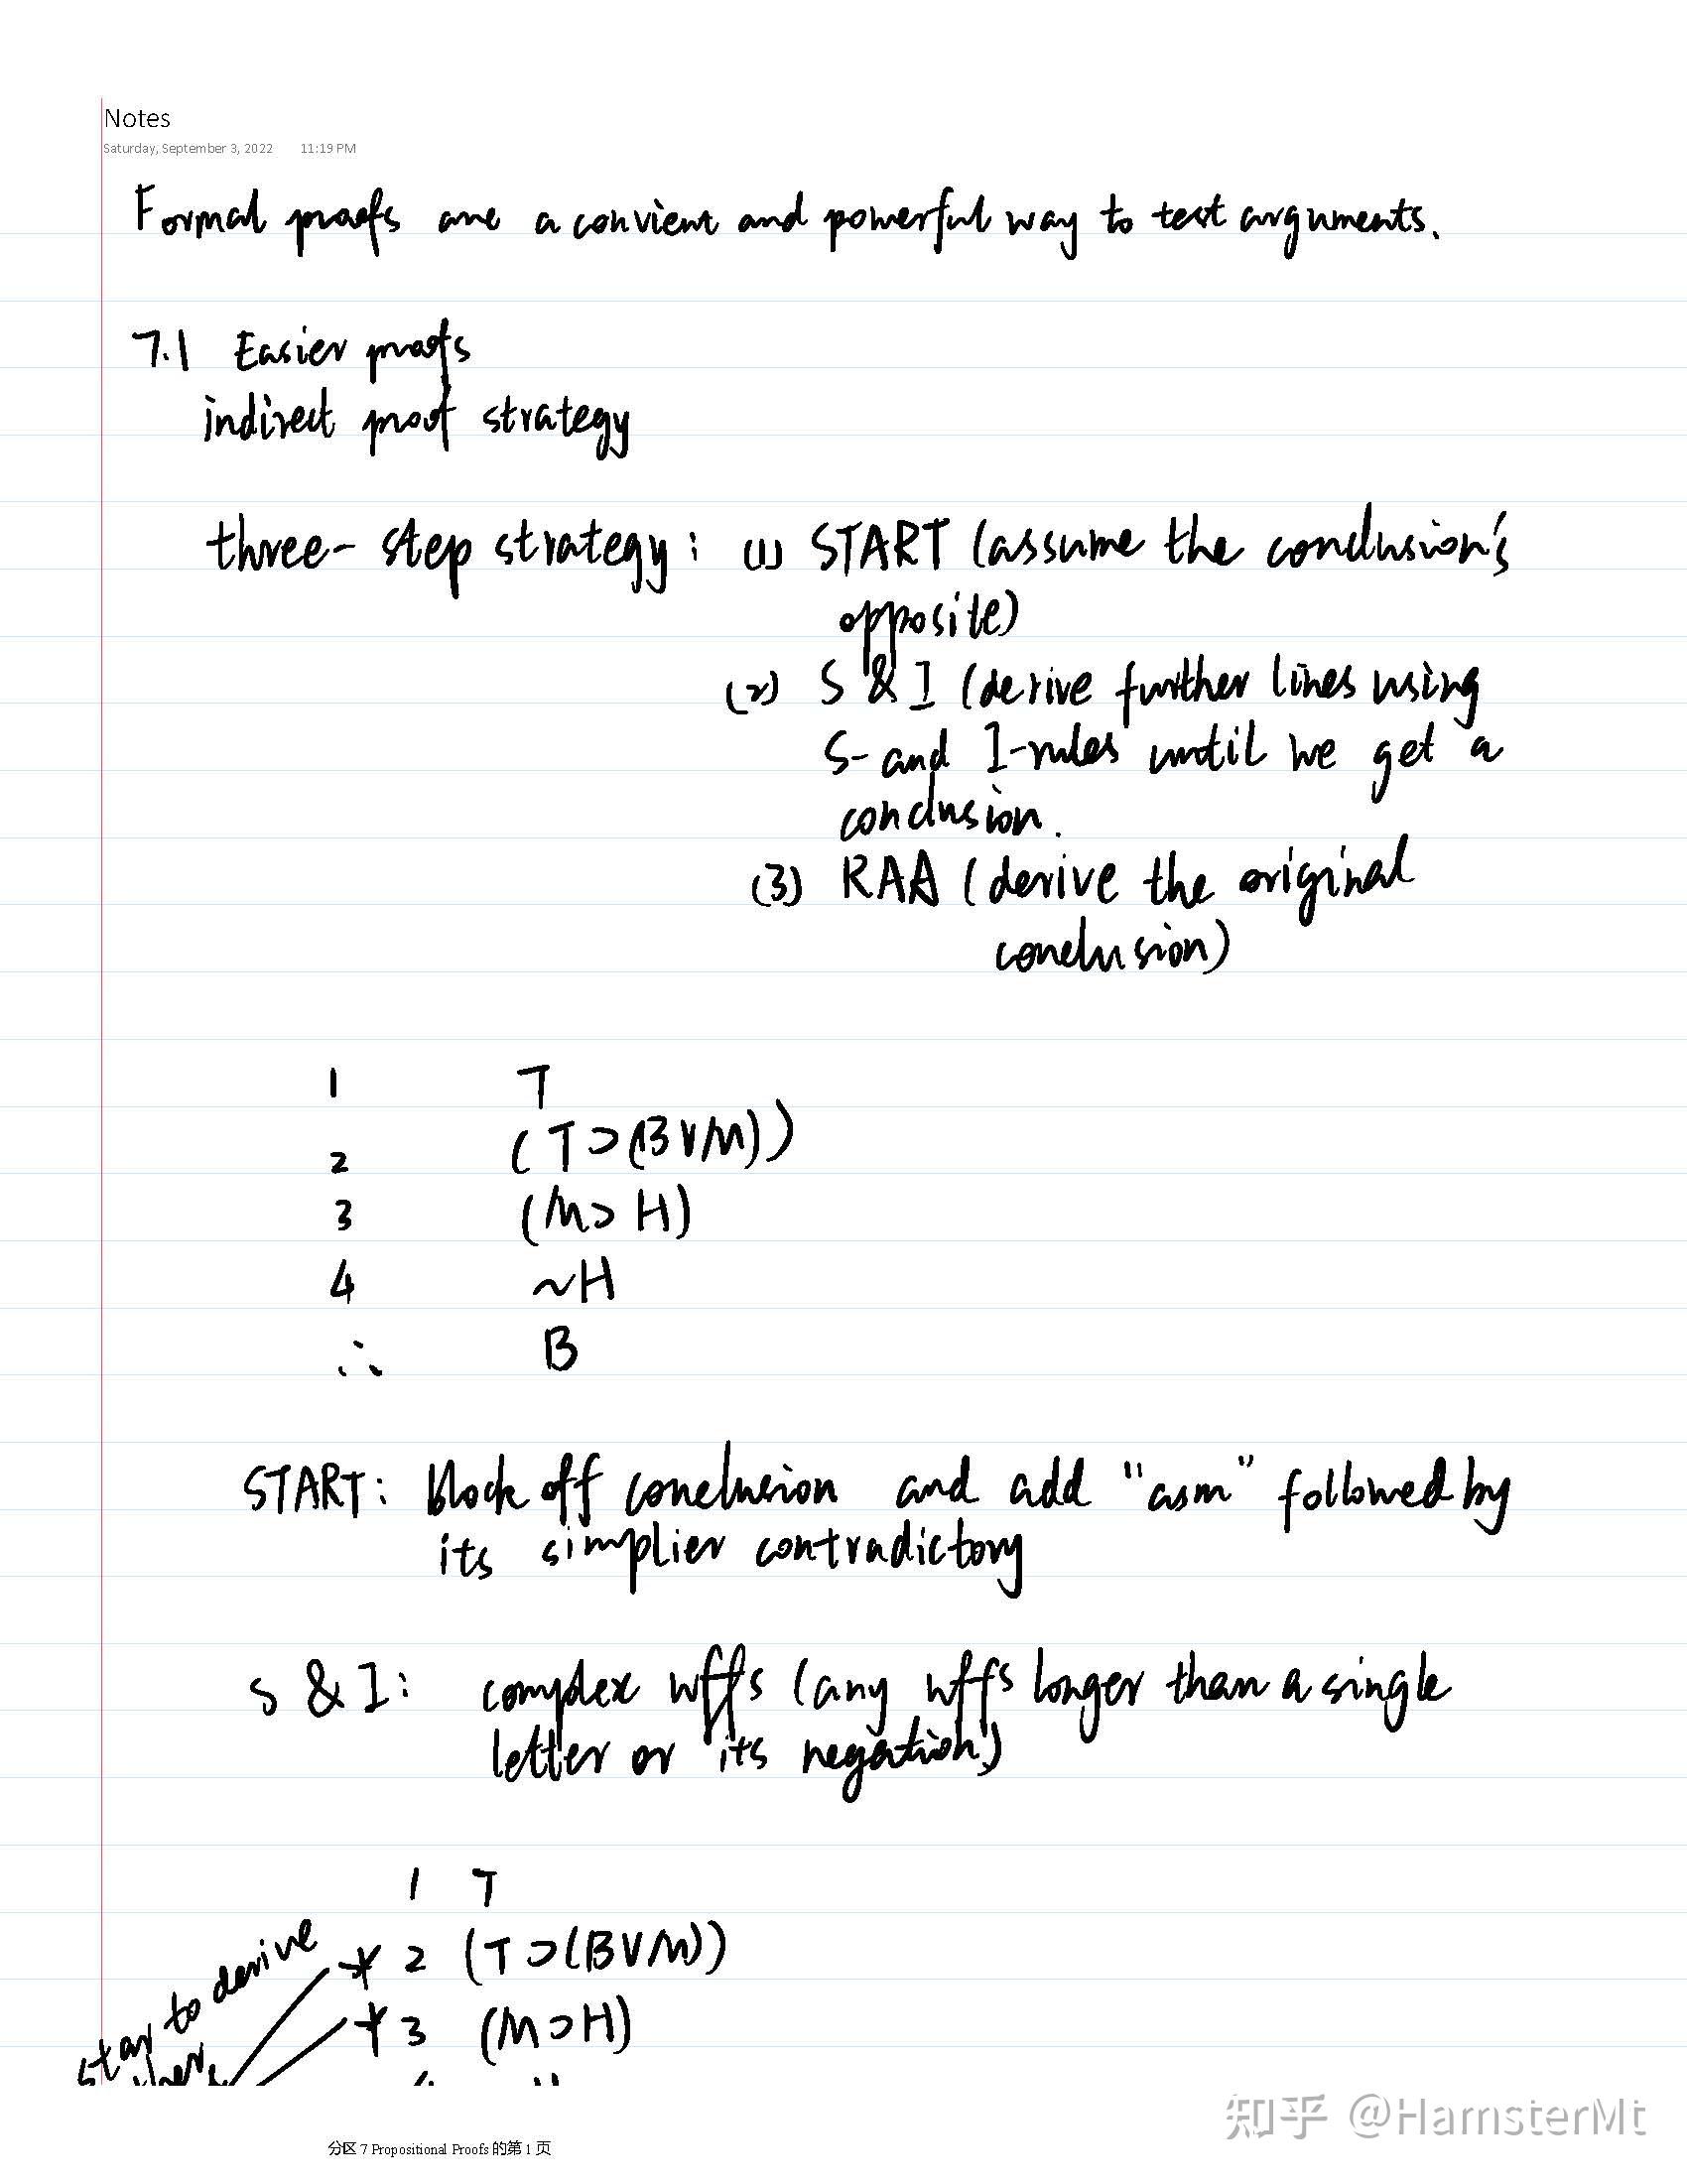 Notes
Saturday, September 3, 2022 11:19 PM
Formal proofs are a convient and powerful way to test arguments.
7.1 Easier proofs
indirect proof strategy
three-step strategy: (1) START (assume the conclusion's
opposite)
(2) S & I (derive further lines using
S- and I-rules until we get a
conclusion.
(3) RAA (derive the original
conclusion)
1 T
2 (T⊃(B∨M))
3 (M⊃H)
4 ~H
∴ B
START: Block off conclusion and add "asm" followed by
its simplier contradictory
S & I: complex wffs (any wffs longer than a single
letter or its negation)
1 T
* 2 (T⊃(B∨M))
* 3 (M⊃H)
to derive
分区 7 Propositional Proofs 的第 1 页
知乎 @HamsterMt